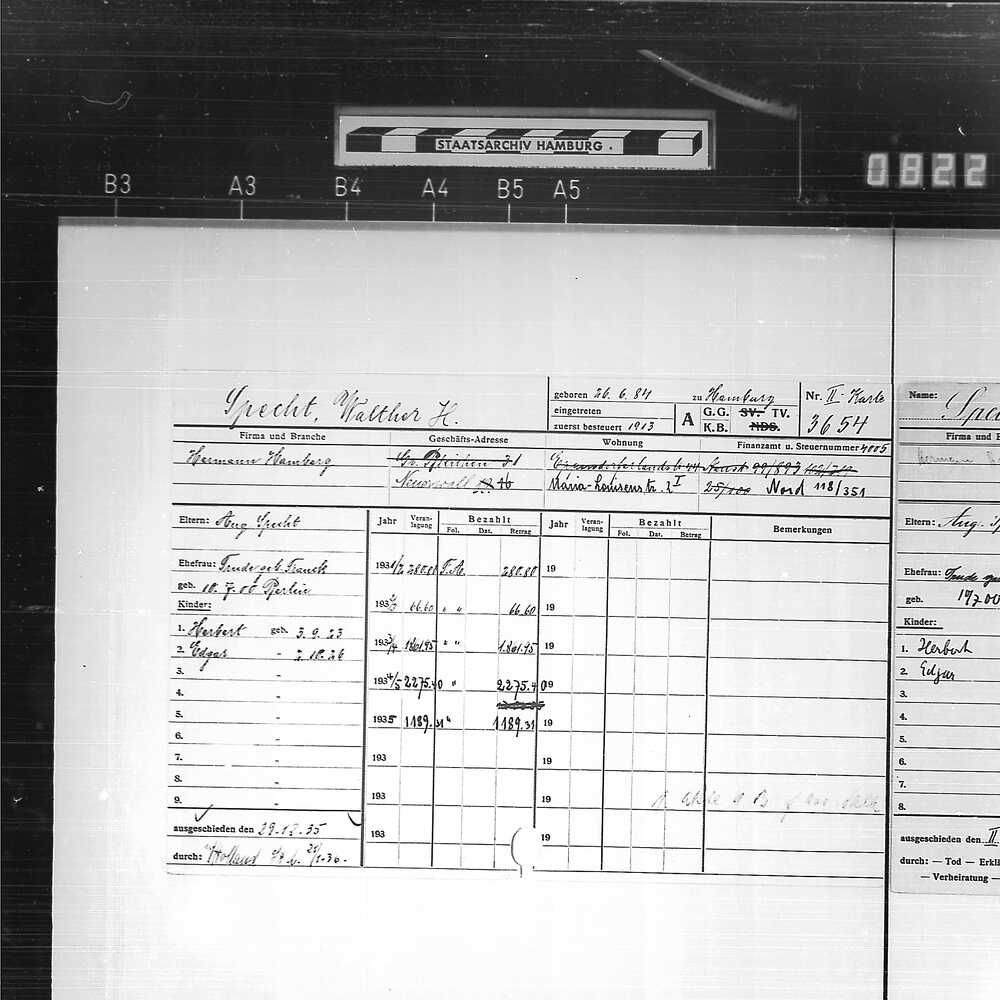 STAATSARCHIV HAMBURG .
0822
B3 A3 B4 A4 B5 A5
Specht, Walther H.
geboren 26.6.84 zu Hamburg
eingetreten
zuerst besteuert 1913
A G.G. SV. TV.
K.B. NDS.
Nr. II. Karte
3654
Firma und Branche Geschäfts-Adresse Wohnung Finanzamt u. Steuernummer 4005
Hermann Hamberg 31 99/893
Neuerwall 16 Maria-Louisenstr. 2 I 25/100 Nord 118/351
Eltern: Aug. Specht
Ehefrau: Trude geb. Franck
geb. 10.7.00 Berlin
Kinder:
1. Herbert geb. 3.9.23
2. Edgar " 2.10.26
3. "
4. "
5. "
6. "
7. "
8. "
9. "
ausgeschieden den 29.12.35
durch: Holland
Jahr Veranlagung Bezahlt Jahr Veranlagung Bezahlt Bemerkungen
Fol. Dat. Betrag Fol. Dat. Betrag
1931/2 280.80 F.A. 280.80 19
1932/3 66.60 " " 66.60 19
1933/4 1861.95 " " 1861.95 19
1934/5 2275.40 " 2275.40 19
1935 1189.31 " 1189.31 19
193 19
193 19
193 19
Name: Spe
Firma und B
Eltern: Aug. Sp
Ehefrau: Trude
geb. 10/7.00
Kinder:
1. Herbert
2. Edgar
3.
4.
5.
6.
7.
8.
ausgeschieden den II.
durch: — Tod — Erklä
— Verheiratung —